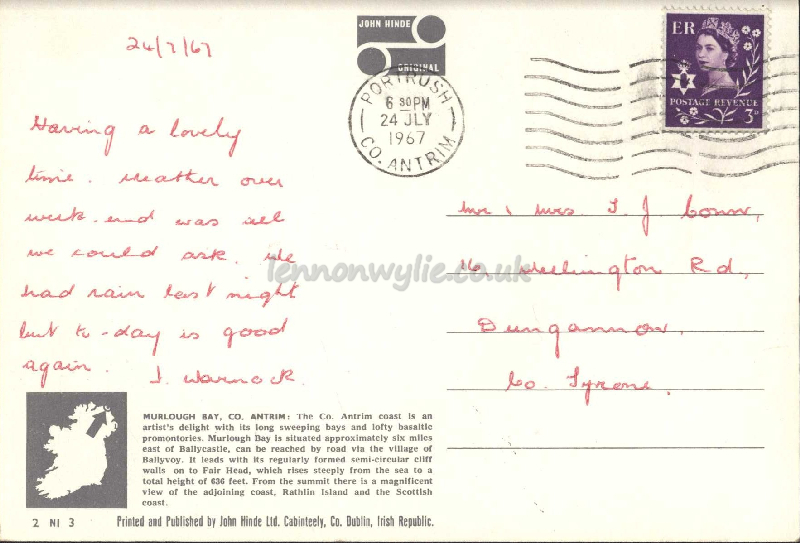 24/7/67
JOHN HINDE
ORIGINAL
PORTRUSH
6 30PM
24 JLY
1967
CO. ANTRIM
ER
POSTAGE REVENUE
3D
Having a lovely
time. Weather over
week-end was all
we could ask. We
had rain last night
but to-day is good
again. J. Warnock.
Mr & Mrs. T. J. Conn,
16 Wellington Rd,
Dungannon,
Co. Tyrone.
lennonwylie.co.uk
MURLOUGH BAY, CO. ANTRIM: The Co. Antrim coast is an
artist's delight with its long sweeping bays and lofty basaltic
promontories. Murlough Bay is situated approximately six miles
east of Ballycastle, can be reached by road via the village of
Ballyvoy. It leads with its regularly formed semi-circular cliff
walls on to Fair Head, which rises steeply from the sea to a
total height of 636 feet. From the summit there is a magnificent
view of the adjoining coast, Rathlin Island and the Scottish
coast.
2 NI 3
Printed and Published by John Hinde Ltd. Cabinteely, Co. Dublin, Irish Republic.